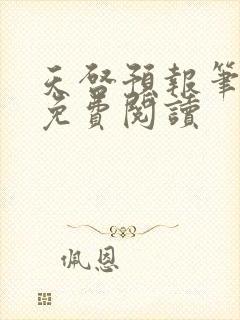 天啓預報筆
免費閱讀
佩恩